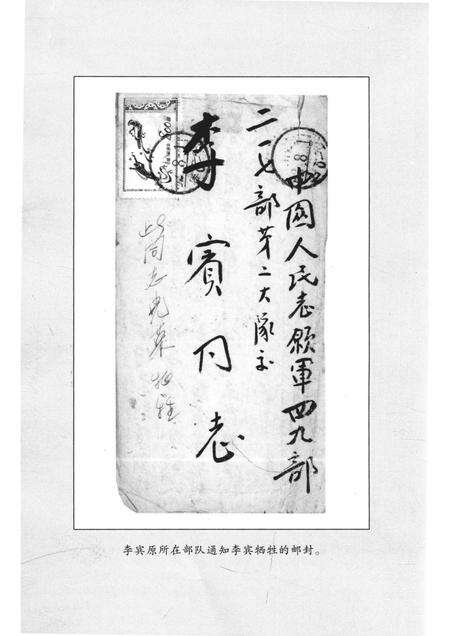 中國人民志願軍四九部
二一七部第二大隊交
李賓同志
此同志光荣牺牲
李宾原所在部队通知李宾牺牲的邮封。